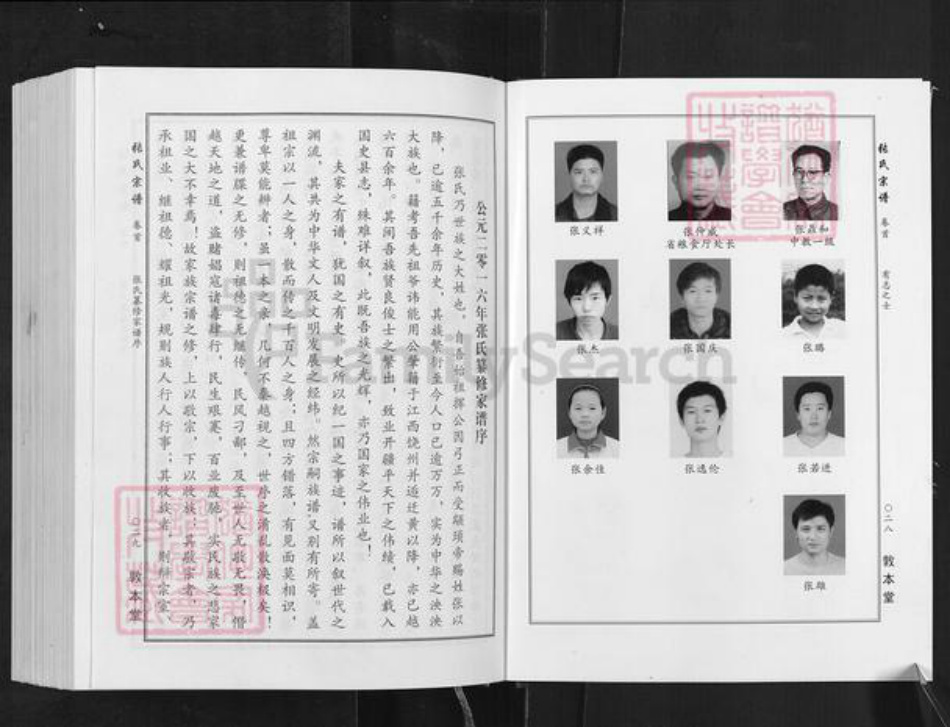 张氏宗谱 卷首 有志之士 〇二八 敦本堂
张磊和
中教一级
张仲威
省粮食厅处长
张义祥
张鹏
张国庆
张杰
张若进
张逸伦
张余佳
张雄
公元二零一六年张氏纂修家谱序
张氏乃世族之大姓也，自吾始祖挥公因弓正而受颛顼帝赐姓张以
降，已逾五千余年历史，其族繁衍至今人口已逾万万，实为中华之泱泱
大族也。籍考吾先祖爷讳能用公肇籍于江西饶州并适迁黄以降，亦已越
六百余年。其间吾族贤良俊士之繁出，致业开疆平天下之伟绩，已载入
国史县志，殊难详叙，此既吾族之光辉，亦乃国家之伟业也！
夫家之有谱，犹国之有史，史所以纪一国之事迹，谱所以叙世代之
渊流，其共为中华文人及文明发展之经纬。然宗嗣族谱又别有所寄。盖
祖宗以一人之身，散而传之千百人之身；且四方错落，有见面莫相识，
尊卑莫能辨者；虽一本之亲，几何不秦越视之，世序之淆乱散涣极矣！
更兼谱牒之无修，则祖德之无继传，民风刁鄙，及至世人无敬无畏，僭
越天地之道，盗赌娼寇诸毒肆行，民生艰蹇，百业废弛，实民族之悲家
国之大不幸焉！故家族宗谱之修，上以敬宗，下以收族；其敬宗者，乃
承祖业、继祖德、耀祖光，规则族人行人行事；其收族者，则辨宗室、
张氏宗谱 卷首 张氏纂修家谱序 〇二九 敦本堂
FamilySearch